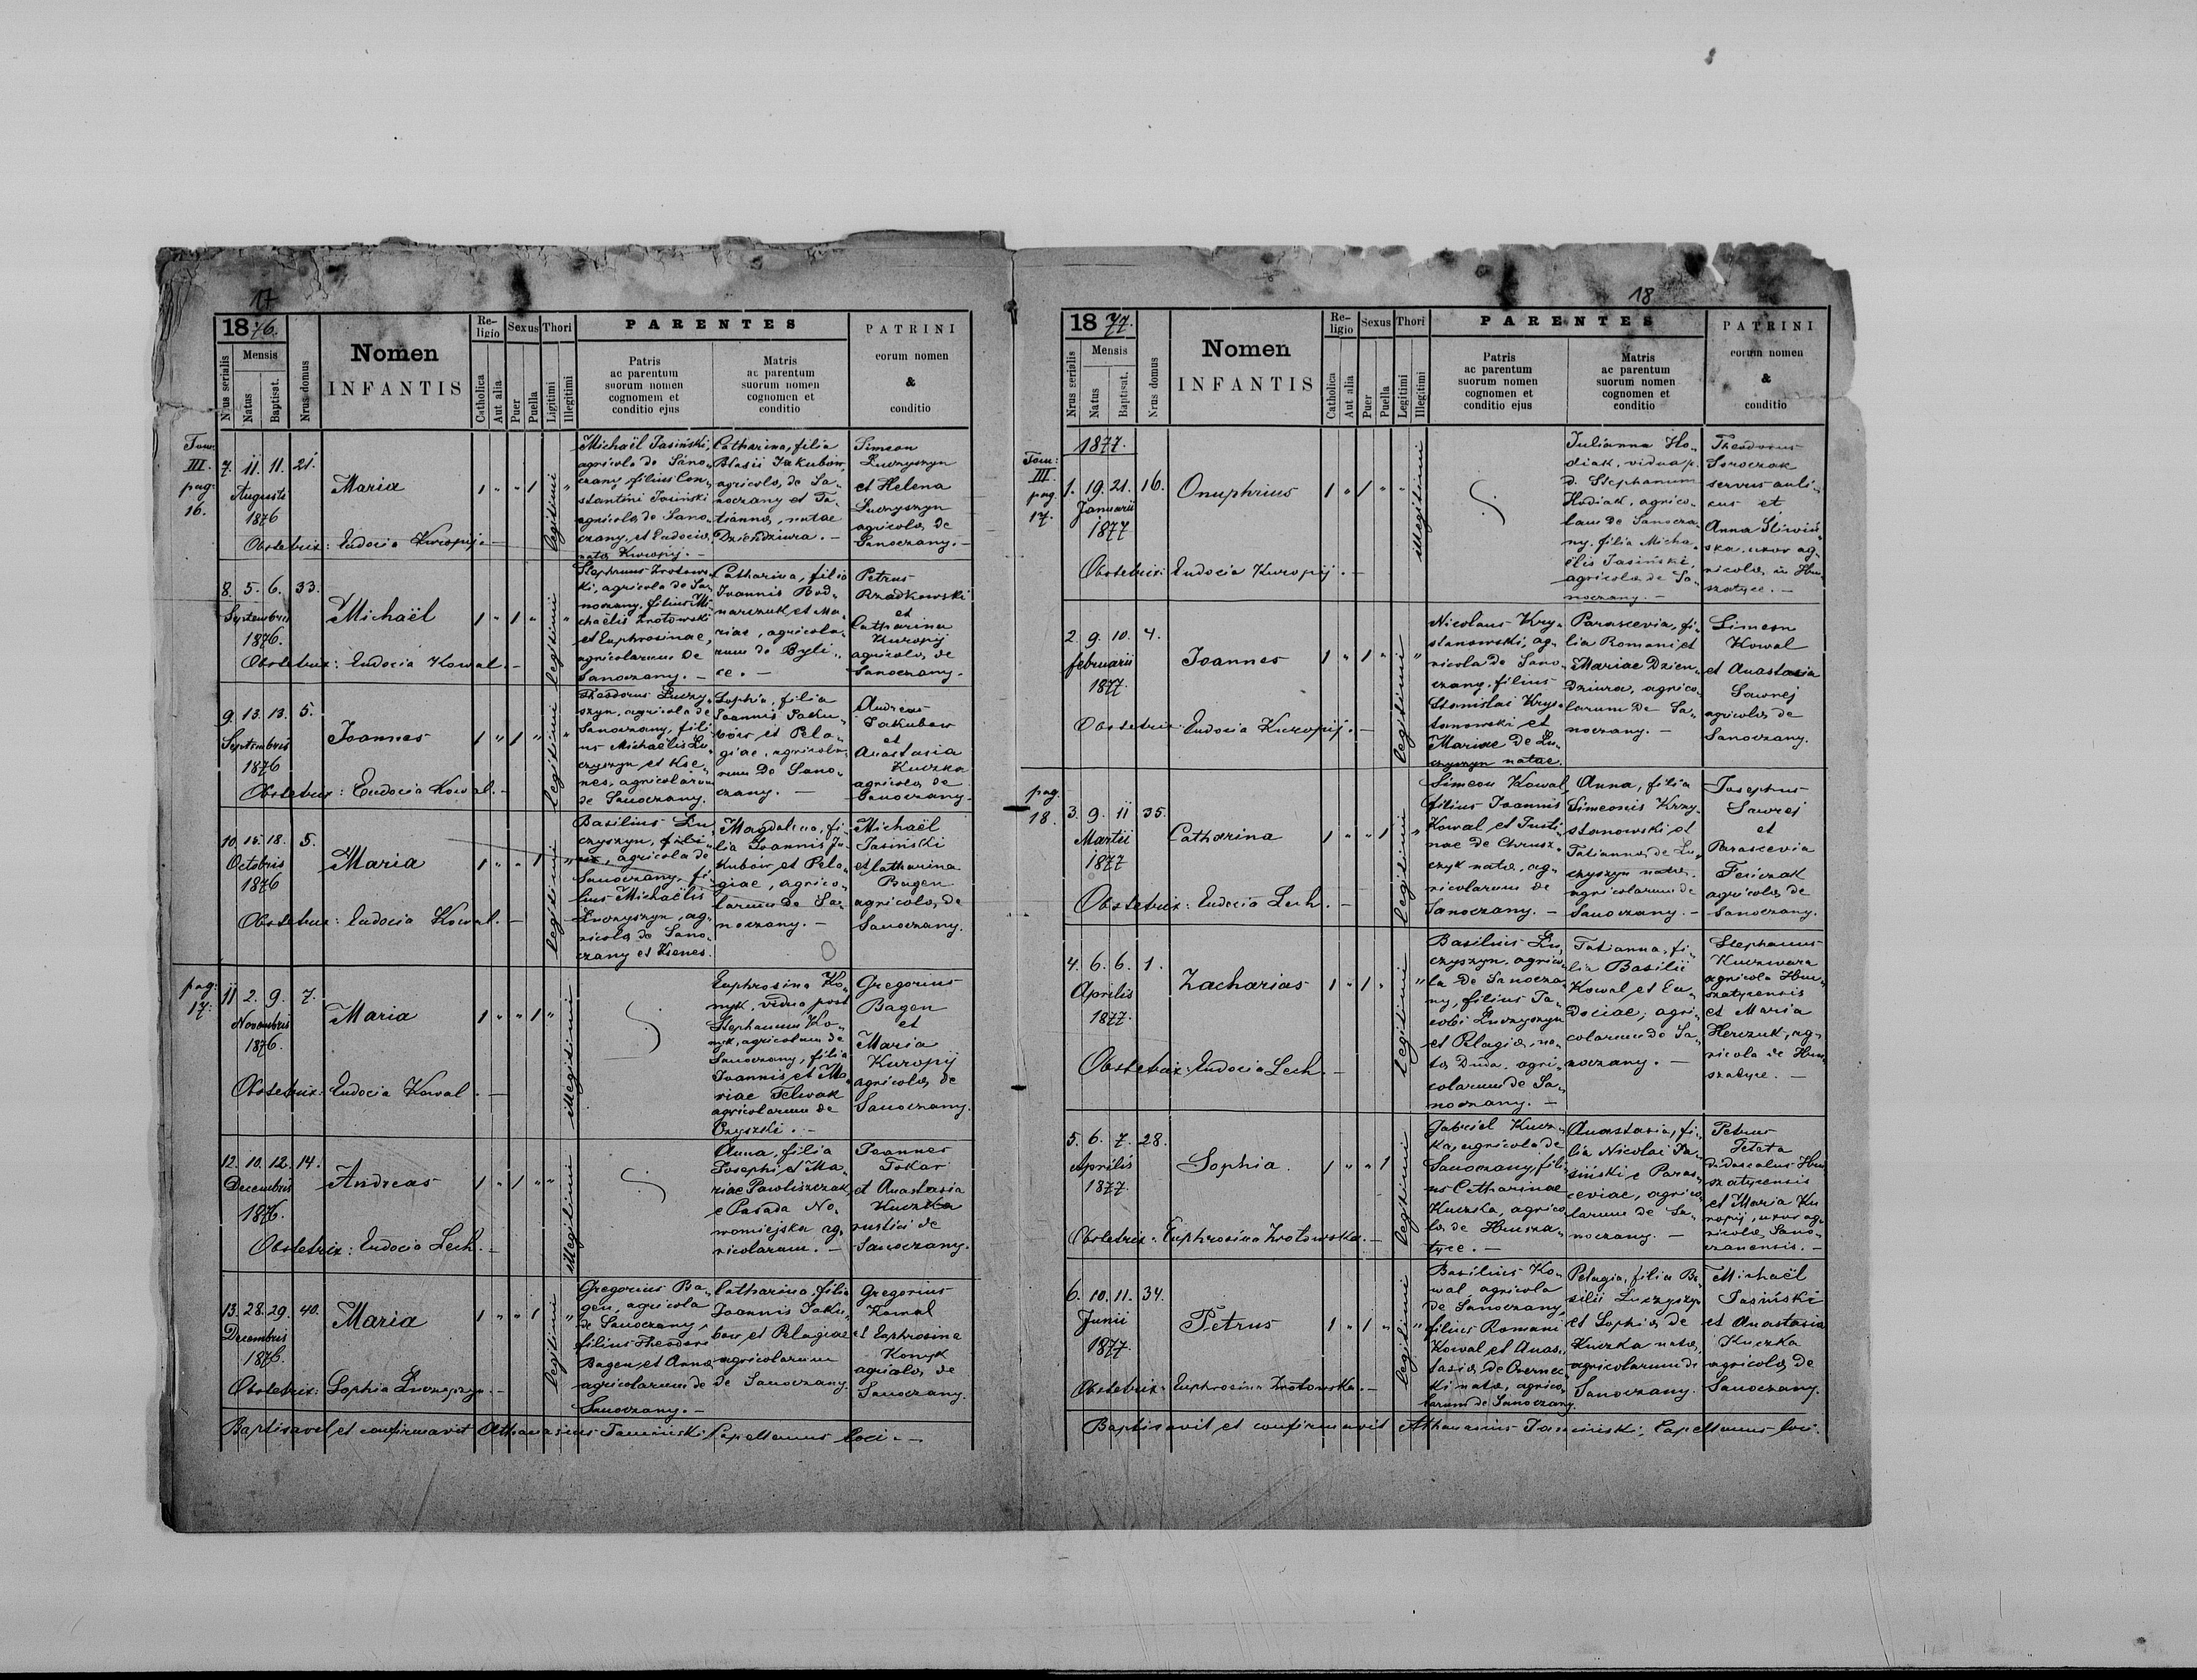 17
1876.
Nrus serialis
Mensis
Natus
Baptisat.
Nrus domus
Nomen
INFANTIS
Re-
ligio
Catholica
Aut alia
Sexus
Puer
Puella
Thori
Ligitimi
Illegitimi
PARENTES
Patris
ac parentum
suorum nomen
cognomem et
conditio ejus
Matris
ac parentum
suorum nomen
cognomen et
conditio
PATRINI
eorum nomen
&
conditio
Tom:
III.
pag:
16.
7. 11. 11. 21.
Augusti
1876
Maria
1 " " 1
legitimi
"
Obstetrix: Eudocia Kuropij. —
Michaël Jasiński,
agricola de Sano-
czany filius Con-
stantini Jasiński
agricola de Sano-
czany, et Eudocia,
nata Kuropij. —
Catharina, filia
Blasii Jakubów,
agricola, de Sa-
noczany et Ta-
tianna, natae
Dziendziura. —
Simeon
Luczyszyn
et Helena
Luczyszyn
agricolae de
Sanoczany. —
8. 5. 6. 33.
Septembris
1876.
Michaël
1 " 1 "
legitimi
"
Obstetrix: Eudocia Kowal. —
Stephanus Zrotows-
ki, agricola de Sa-
noczany, filius Mi-
chaëlis Zrotowski
et Euphrosinae,
agricolarum de
Sanoczany. —
Catharina, filia
Joannis Bod-
narczuk et Ma-
riae, agricola-
rum de Byli-
ce. —
Petrus
Rzadkowski
et
Catharina
Kuropij
agricolae de
Sanoczany.
9. 13. 13. 5.
Septembris
1876
Joannes
1 " 1 "
legitimi
"
Obstetrix: Eudocia Kowal. —
Theodorus Luczy-
szyn, agricola de
Sanoczany, fili-
us Michaëlis Lu-
czyszyn et Kse-
nes, agricolarum
de Sanoczany.
Sophia, filia
Joannis Jaku-
bów et Pela-
giae, agricola-
rum de Sano-
czany. —
Andreas
Jakubow
et
Anastasia
Kuczka
agricolae de
Sanoczany.
10. 15. 18. 5.
Octobris
1876
Maria
1 " " 1
legitimi
"
Obstetrix: Eudocia Kowal. —
Basilius Lu-
czyszyn, fili-
us, agricola de
Sanoczany, fi-
lius Michaëlis
Luczyszyn, ag-
ricola de Sano-
czany et Ksenes.
Magdalena, fi-
lia Joannis Ja-
kubów et Pela-
giae, agrico-
larum de Sa-
noczany. —
Michaël
Jasiński
et Catharina
Bagen
agricolae de
Sanoczany.
pag:
17.
11 2. 9. 7.
Novembris
1876.
Maria
1 " " 1 "
illegitimi
Obstetrix: Eudocia Kowal. —
Euphrosina Ko-
nyk, vidua post
Stephanum Ko-
nyk, agricolam de
Sanoczany, filia
Joannis et Ma-
riae Felwak
agricolarum de
Czyszki. —
Gregorius
Bagen
et
Maria
Kuropij
agricolae de
Sanoczany.
12. 10. 12. 14.
Decembris
1876.
Andreas
1 " 1 " "
illegitimi
Obstetrix: Eudocia Lech. —
Anna, filia
Josephi et Ma-
riae Pawliszczak
e Posada No-
womiejska ag-
ricolarum. —
Joannes
Tokar
et Anastasia
Kuczka
rustici de
Sanoczany.
13. 28. 29. 40.
Decembris
1876.
Maria
1 " " 1
legitimi
"
Obstetrix: Sophia Luczyszyn. —
Gregorius Ba-
gen, agricola
de Sanoczany,
filius Theodori
Bagen, et Anna
agricolarum de
Sanoczany. —
Catharina, filia
Joannis Jaku-
bow, et Pelagiae
agricolarum
de Sanoczany.
Gregorius
Kowal
et Euphrosina
Konyk
agricolae de
Sanoczany.
Baptisavit et confirmavit Athanasius Jamiński Capellanus loci. —
18
1877.
Nrus serialis
Mensis
Natus
Baptisat.
Nrus domus
Nomen
INFANTIS
Re-
ligio
Catholica
Aut alia
Sexus
Puer
Puella
Thori
Legitimi
Illegitimi
PARENTES
Patris
ac parentum
suorum nomen
cognomen et
conditio ejus
Matris
ac parentum
suorum nomen
cognomen et
conditio
PATRINI
eorum nomen
&
conditio
1877.
Tom:
III.
pag.
17.
1. 19. 21. 16.
Januarii
1877
Onuphrius
1 " 1 " "
illegitimi
Obstetrix: Eudocia Kuropij. —
Julianna Ho-
diak, vidua p.
d. Stephanum
Hodiak, agrico-
lam de Sanocza-
ny, filia Micha-
ëlis Jasiński,
agricola de Sa-
noczany. —
Theodorus
Soroczak
servus auli-
cus et
Anna Śliwiń-
ska, uxor ag-
ricolae in Hu-
szatyce. —
2. 9. 10. 4.
februarii
1877.
Joannes
1 " 1 "
legitimi
"
Obstetrix: Eudocia Kuropij. —
Nicolaus Kry-
stanowski, ag-
ricola de Sano-
czany, filius
Stanislai Krys-
tanowski et
Mariae de Lu-
czyszyn natae.
Parascevia, fi-
lia Romani et
Mariae Dzien-
dziura, agrico-
larum de Sa-
noczany. —
Simeon
Kowal
et Anastasia
Sawrej
agricolae de
Sanoczany.
pag.
18.
3. 9. 11 35.
Martii
1877
Catharina
1 " " 1
legitimi
"
Obstetrix: Eudocia Lech. —
Simeon Kowal,
filius Joannis
Kowal et Justi-
nae de Chrusz-
czyk nata, ag-
ricolarum de
Sanoczany. —
Anna, filia
Simeonis Krzy-
stanowski et
Tatianna de Lu-
czyszyn nata.
agricolarum de
Sanoczany. —
Josephus
Sawrej
et
Parascevia
Feńczak
agricolae de
Sanoczany.
4. 6. 6. 1.
Aprilis
1877.
Zacharias
1 " 1 "
legitimi
"
Obstetrix: Eudocia Lech. —
Basilius Lu-
czyszyn, agrico-
la de Sanocza-
ny, filius Ja-
cobi Luczyszyn
et Pelagia, na-
ta Duda, agri-
colarum de Sa-
noczany. —
Tatianna, fi-
lia Basilii
Kowal et Eu-
dociae, agri-
colarum de Sa-
noczany. —
Stephanus
agricola Hu-
szatycensis
et Maria
Herczuk, ag-
ricola de Hu-
szatyce. —
5. 6. 7. 28.
Aprilis
1877.
Sophia.
1 " " 1
legitimi
Obstetrix: Euphrosina Zrotowska. —
Gabriel Kucz-
ka, agricola de
Sanoczany, fili-
us Catharinae
Kuczka, agrico-
la de Husza-
tyce. —
Anastasia, fi-
lia Nicolai Ja-
siński e Paras-
ceviae, agrico-
larum de Sa-
noczany. —
Petrus
didascalus Hu-
szatycensis
et Maria Ku-
ropij, uxor ag-
ricolae Sano-
czanensis. —
6. 10. 11. 34.
Junii
1877.
Petrus
1 " 1 "
legitimi
"
Obstetrix: Euphrosina Zrotowska. —
Basilius Ko-
wal, agricola
de Sanoczany,
filius Romani
Kowal et Anas-
tasia, de Czernec-
ki nata, agrico-
larum de Sanoczany.
Pelagia, filia Ba-
silii Luczyszyn
et Sophia de
Kuczka nata,
agricolarum de
Sanoczany.
Michaël
Jasiński
et Anastasia
Kuczka
agricolae de
Sanoczany.
Baptisavit et confirmavit Athanasius Jamiński, Capellanus loci.